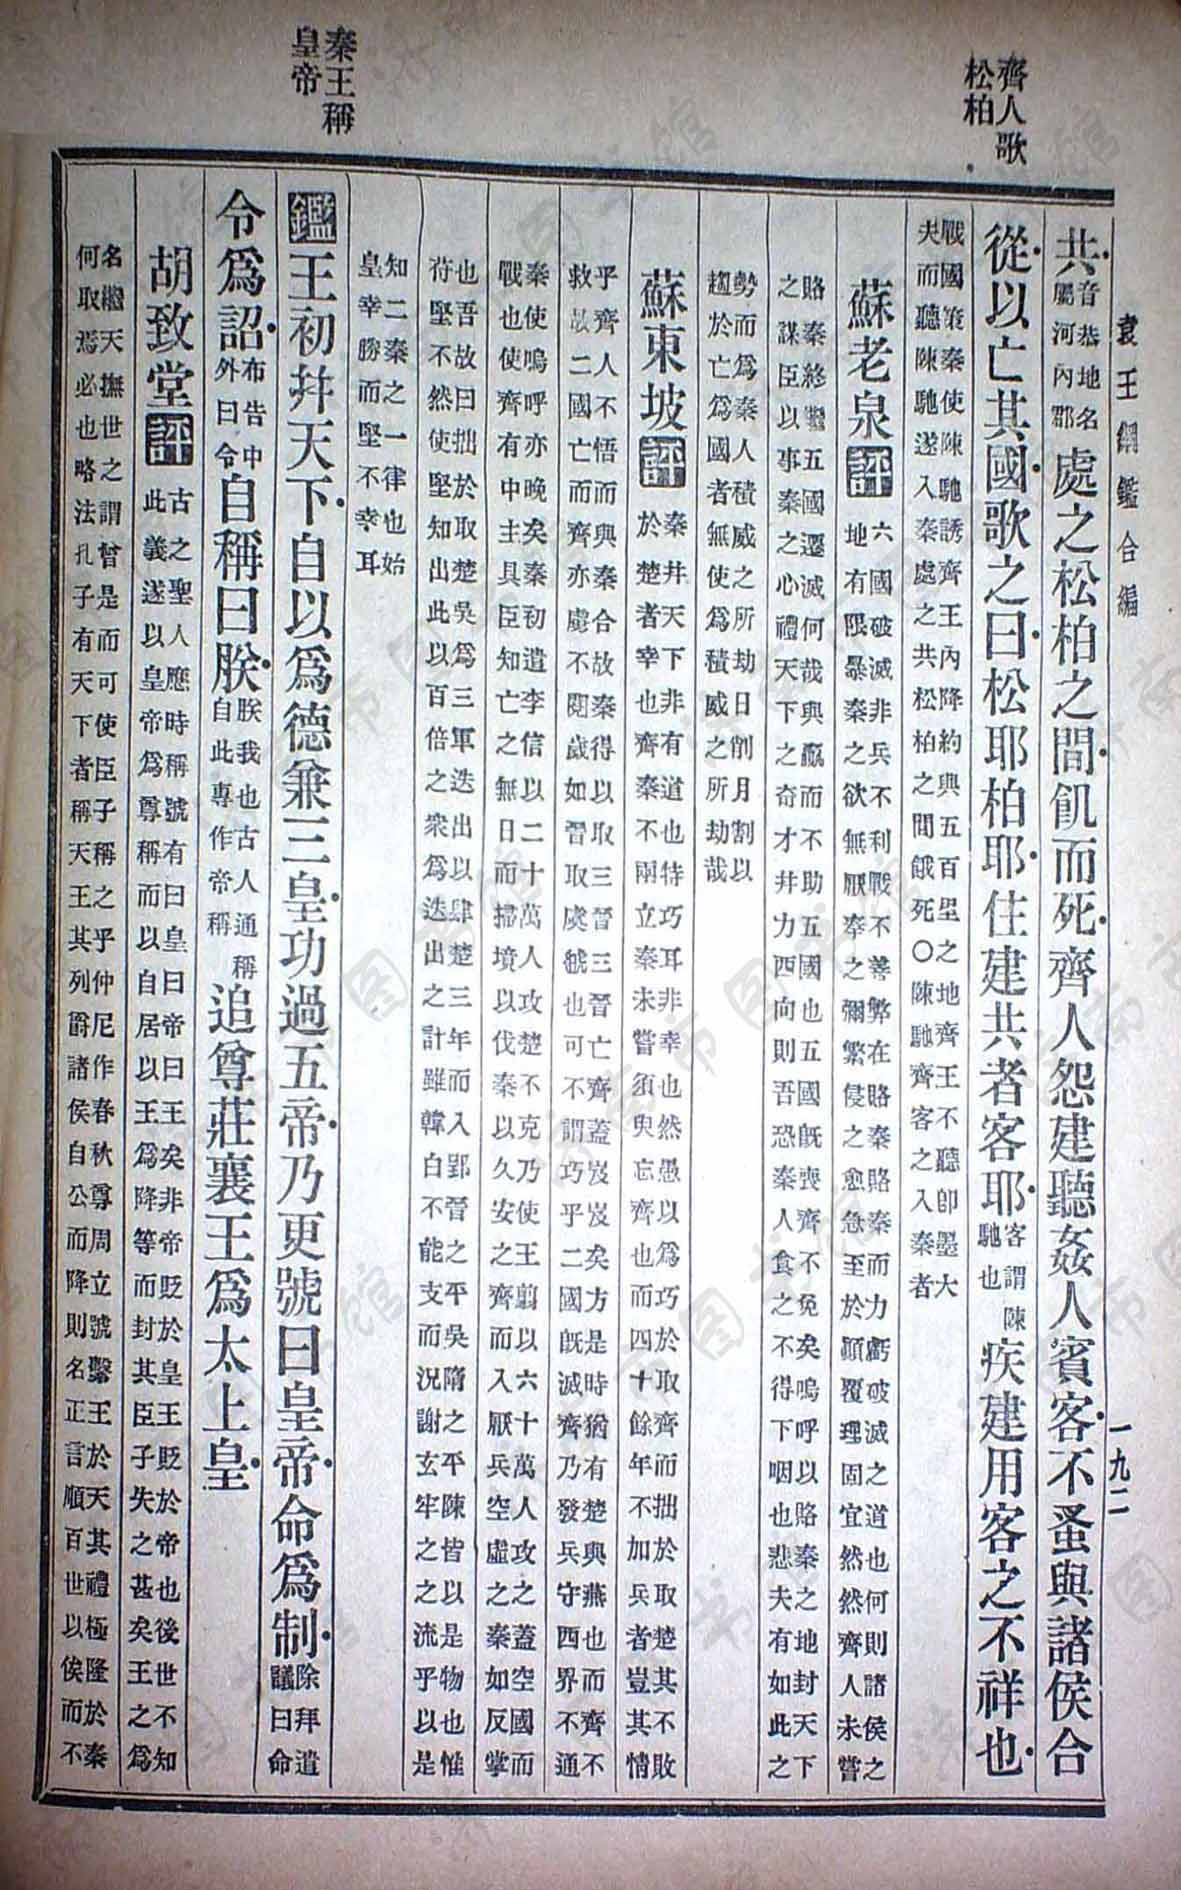 袁王綱鑑合編
一九二
齊人歌
松柏
秦王稱
皇帝
共音恭地名屬河內郡處之松柏之間飢而死齊人怨建聽姦人賓客不蚤與諸侯合
從以亡其國歌之曰松耶柏耶住建共者客耶客謂陳馳也疾建用客之不祥也
戰國策秦使陳馳誘齊王內降約與五百里之地齊王不聽卽墨大
夫而聽陳馳遂入秦處之共松柏之間餓死○陳馳齊客之入秦者
蘇老泉評
六國破滅非兵不利戰不善弊在賂秦賂秦而力虧破滅之道也何則諸侯之
地有限暴秦之欲無厭奉之彌繁侵之愈急至於顚覆理固宜然然齊人未嘗
賂秦終繼五國遷滅何哉與嬴而不助五國也五國旣喪齊不免矣嗚呼以賂秦之地封天下
之謀臣以事秦之心禮天下之奇才幷力西向則吾恐秦人食之不得下咽也悲夫有如此之
勢而爲秦人積威之所劫日削月割以
趨於亡爲國者無使爲積威之所劫哉
蘇東坡評
秦幷天下非有道也特巧耳非幸也然愚以爲巧於取齊而拙於取楚其不敗
於楚者幸也齊秦不兩立秦未嘗須臾忘齊也而四十餘年不加兵者豈其情
乎齊人不悟而與秦合故秦得以取三晉三晉亡齊蓋岌岌矣方是時猶有楚與燕也而齊不
救故二國亡而齊亦虜不閱歲如晉取虞虢也可不謂巧乎二國旣滅齊乃發兵守西界不通
秦使嗚呼亦晚矣秦初遣李信以二十萬人攻楚不克乃使王翦以六十萬人攻之蓋空國而
戰也使齊有中主具臣知亡之無日而掃境以伐秦以久安之齊而入厭兵空虛之秦如反掌
也吾故曰拙於取楚吳爲三軍迭出以肆楚三年而入郢晉之平吳隋之平陳皆以是物也惟
苻堅不然使堅知出此以百倍之衆爲迭出之計雖韓白不能支而況謝玄牢之之流乎以是
知二秦之一律也始
皇幸勝而堅不幸耳
鑑王初幷天下自以爲德兼三皇功過五帝乃更號曰皇帝命爲制除拜遣議曰命
令爲詔布告中外曰令自稱曰朕朕我也古人通稱自此專作帝稱追尊莊襄王爲太上皇
胡致堂評
古之聖人應時稱號有曰皇曰帝曰王矣非帝貶於皇王貶於帝也後世不知
此義遂以皇帝爲尊稱而以自居以王爲降等而封其臣子失之甚矣王之爲
名繼天撫世之謂曾是而可使臣子稱之乎仲尼作春秋尊周立號繫王於天其禮極隆於秦
何取焉必也略法孔子有天下者稱天王其列爵諸侯自公而降則名正言順百世以俟而不